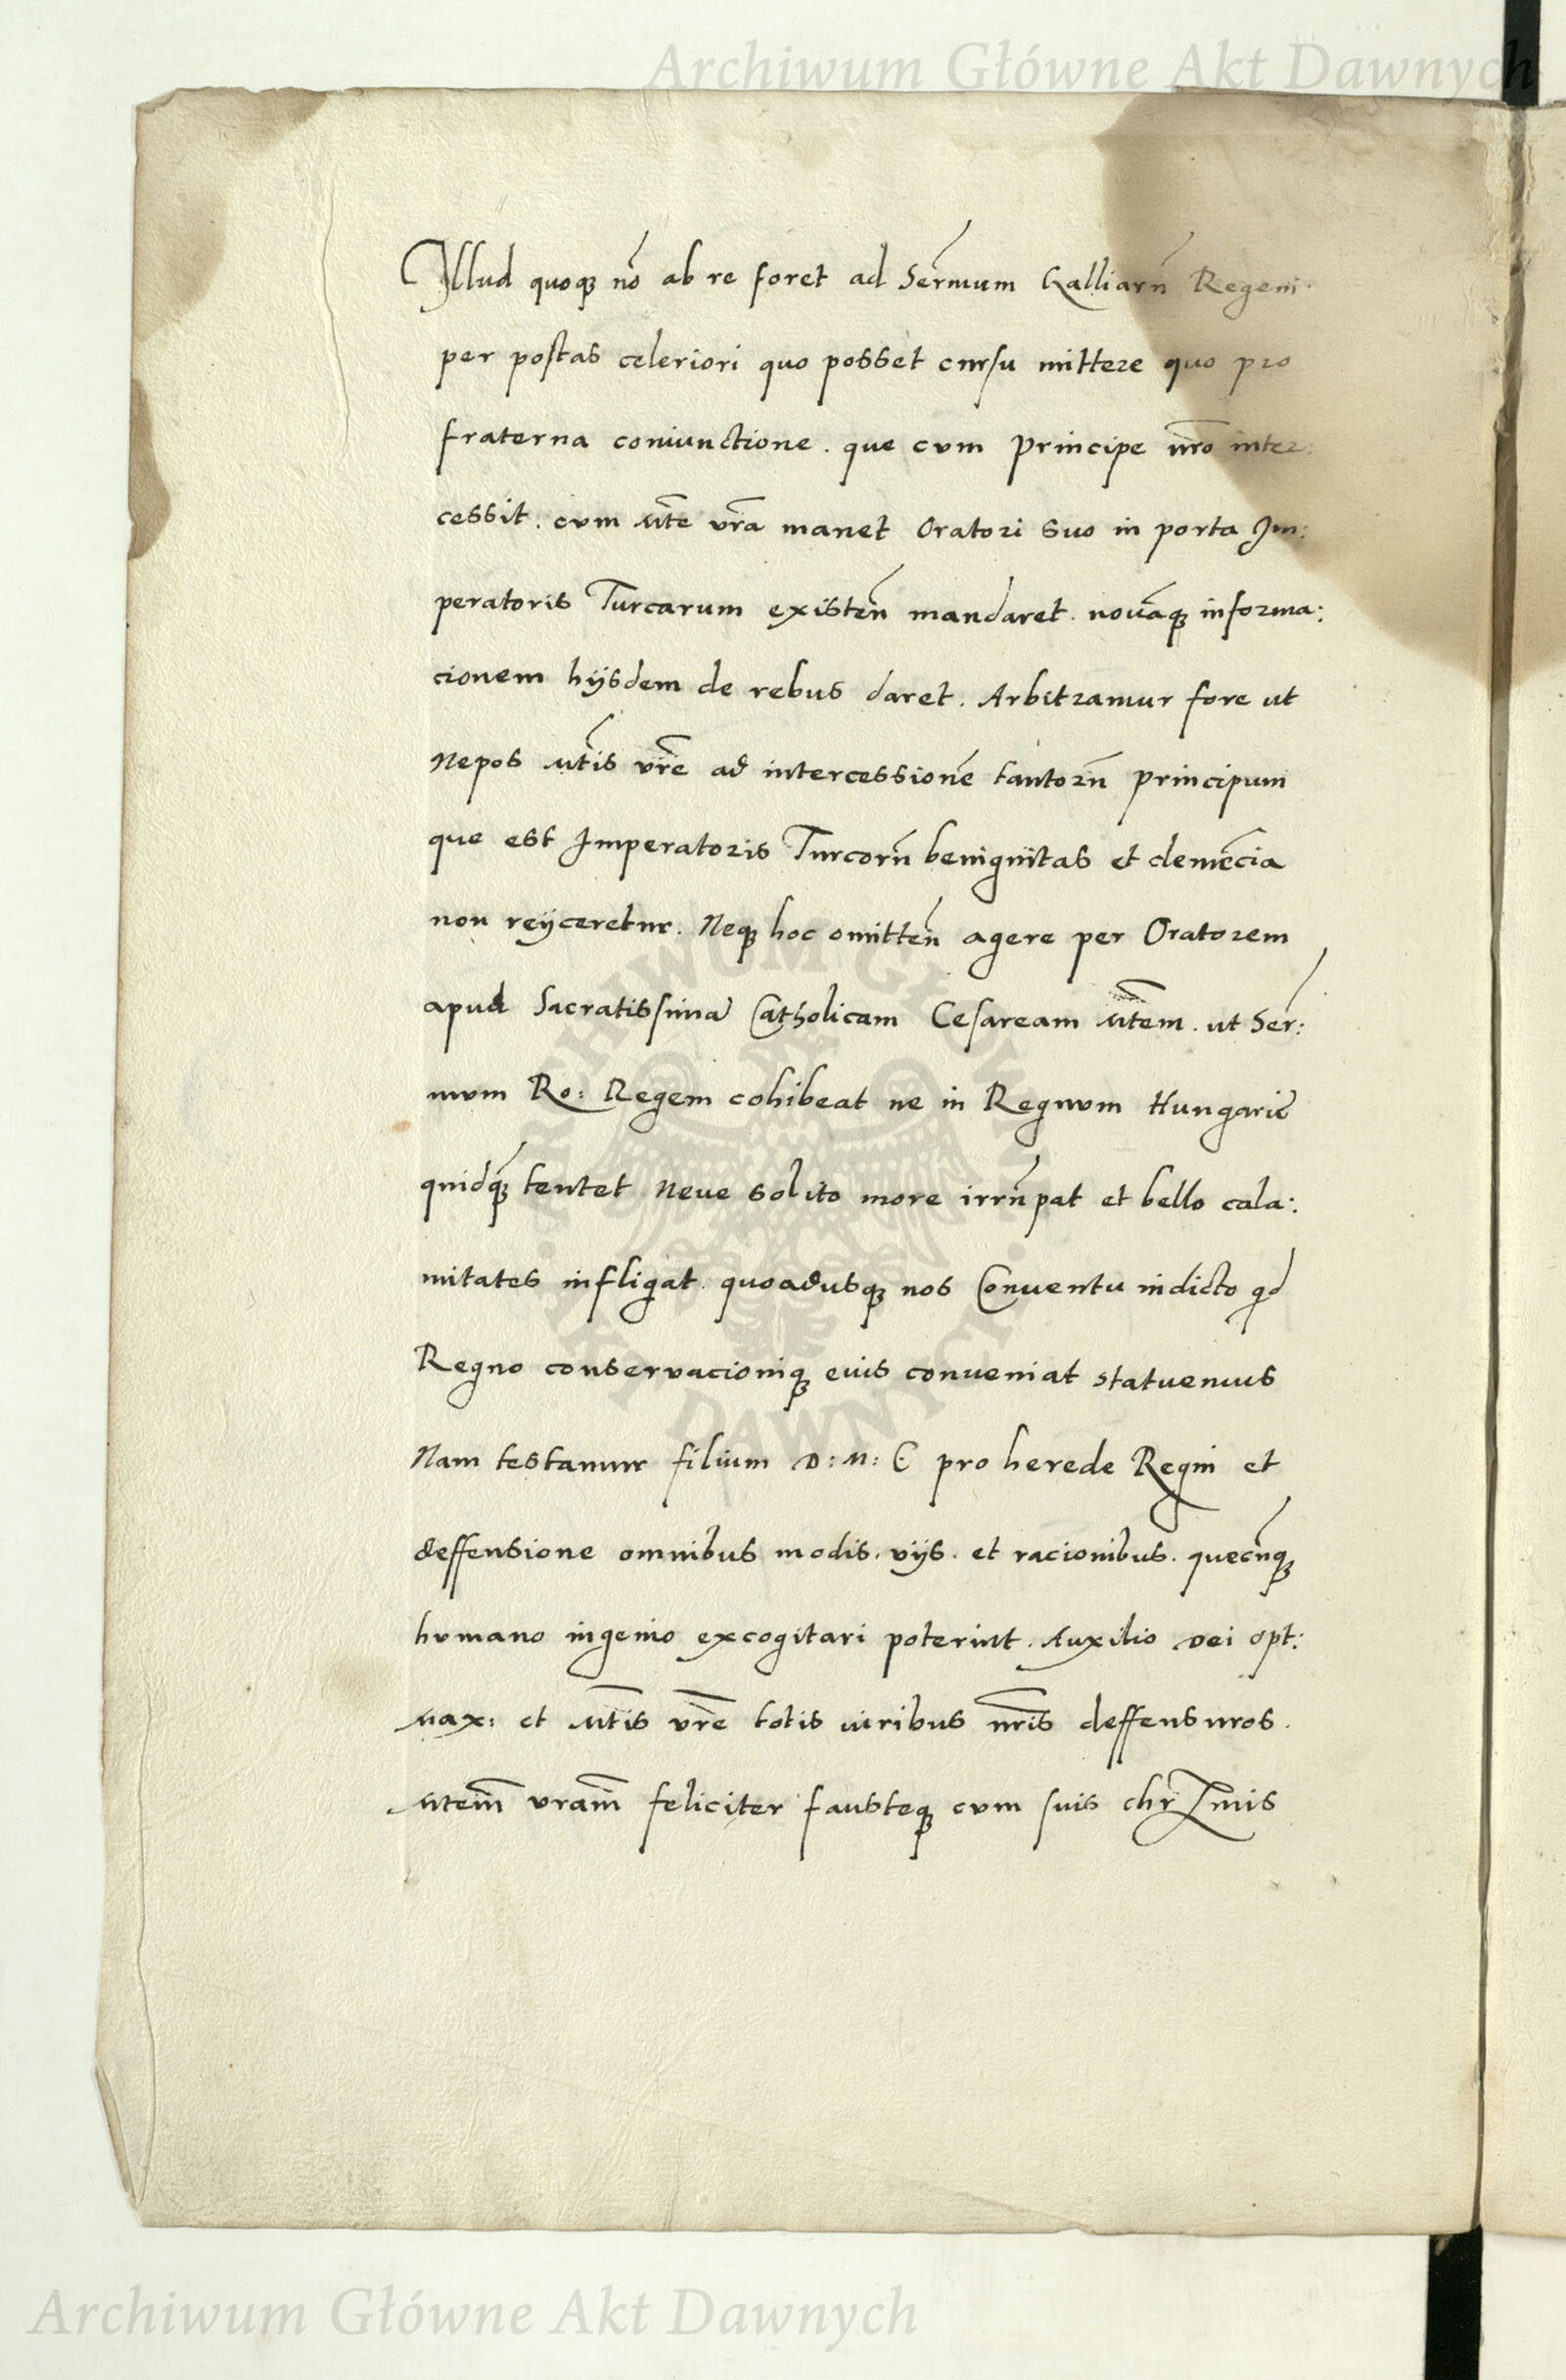 Archiwum Główne Akt Dawnych
Illud quoq; nõ ab re foret ad Serm̃um Galliarũ Regem
per postas celeriori quo posset cursu mittere quo pro
fraterna coniunctione . que cum principe nr̃o inter:
cessit . cum Mte vr̃a manet Oratori suo in porta Im:
peratoris Turcarum existeñ mandaret . nouãq; informa:
cionem hijsdem de rebus daret . Arbitramur fore ut
Nepos Mtis vr̃e ad intercessionẽ tantorũ principum
que est Imperatoris Turcorũ benignitas et clemẽcia
non reijceretur . Neq; hoc omitteñ agere per Oratorem
apud Sacratissimã Catholicam Cesaream Mtem . ut Ser:
mum Ro: Regem cohibeat ne in Regnum Hungariẽ
quidq̃; tentet Neue solito more irrũpat et bello cala:
mitates infligat . quoadusq; nos Conuentu indicto qd
Regno conservacioniq; euis conveniat statuemus
Nam testamur filium D: M: E pro herede Regni et
deffensione omnibus modis . vijs . et racionibus . quecũq;
humano ingenio excogitari poterint . Auxilio Dei opt:
Max: et Mtis vr̃e totis uiribus nr̃is deffensuros .
Mtem̃ vram̃ feliciter fausteq; cum suis chr̃Imis
ARCHIWUM GŁÓWNE AKT DAWNYCH
Archiwum Główne Akt Dawnych